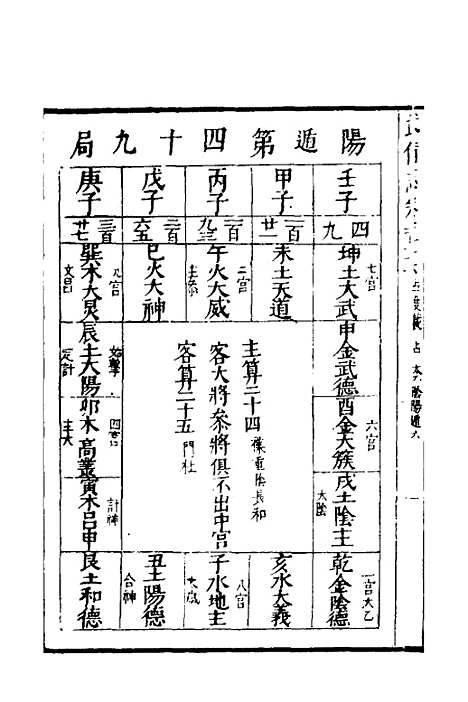 陽遁第四十九局
壬子
四九
甲子
一百廿一
丙子
一百九三
戊子
二百六五
庚子
三百廿七
坤土大武
七宮
未土天道
午火大威
二宮
主參
巳火大神
巽木大炅
九宮
文昌
申金武德
辰土太陽
始擊
定計
酉金太簇
六宮
卯木高叢
四宮
主大
戌土陰主
大陰
寅木呂申
計神
乾金陰德
一宮太乙
亥水大義
子水地主
八宮
太歲
丑土陽德
合神
艮土和德
主算二十四
客大將參將俱不出中宮
客算二十五
門杜